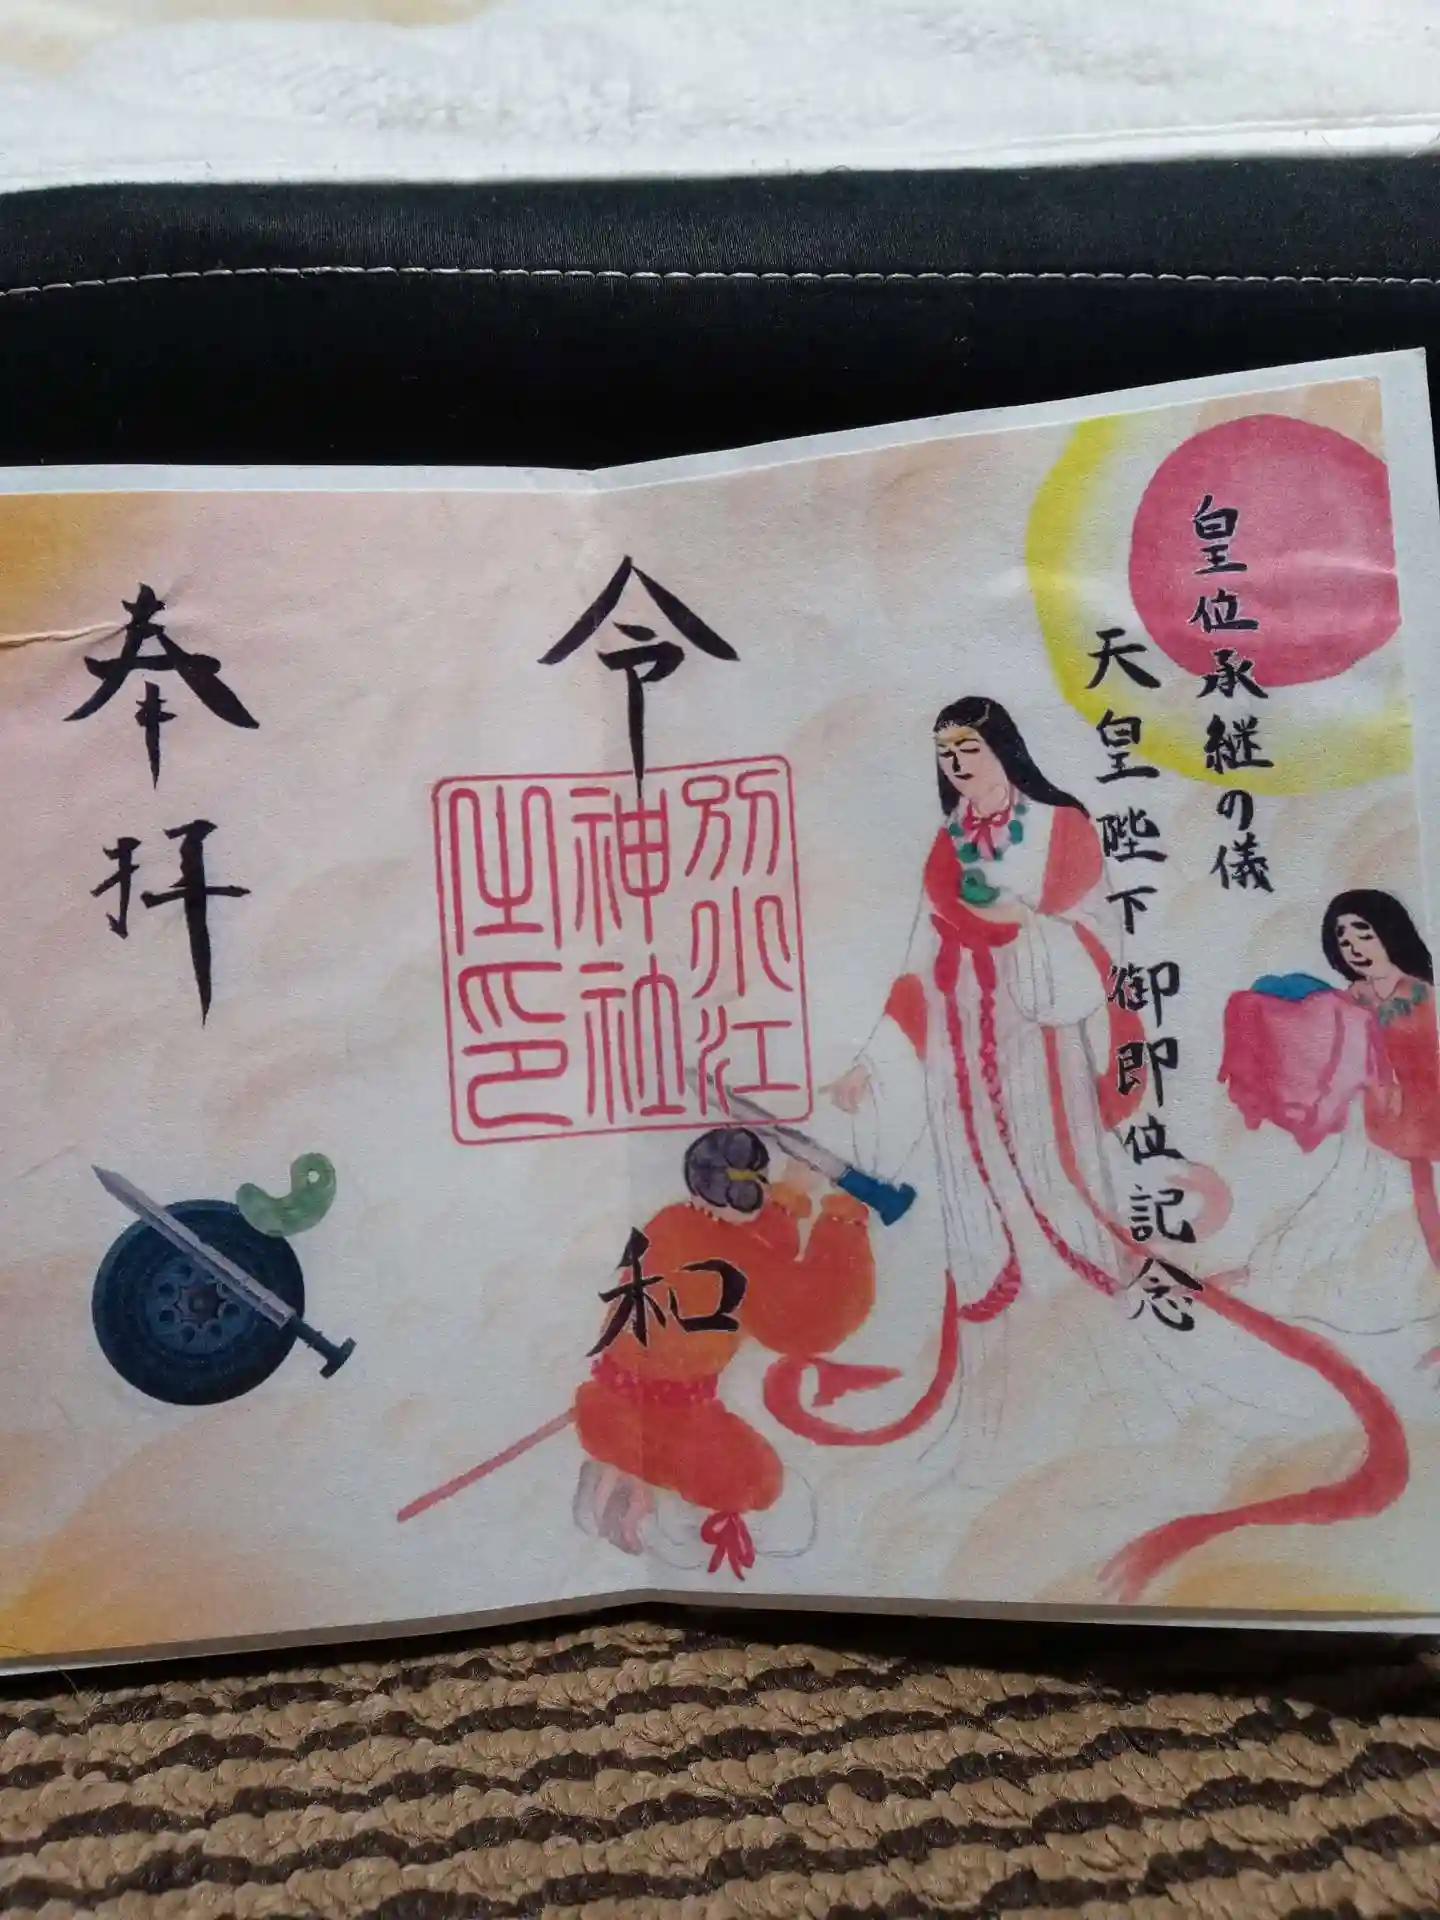 皇位承継の儀
天皇陛下御即位記念
令和
別小江
神社
之印
奉拝